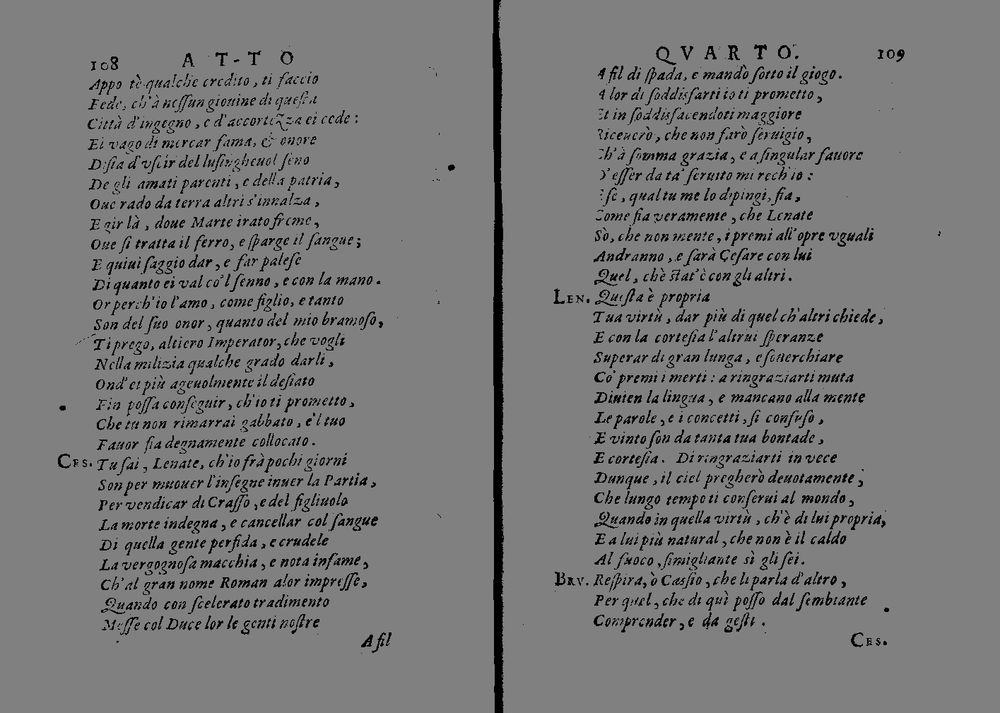 108 ATTO
Appo tè qualche credito, ti faccio
Fede, ch'à nessun giouine di questa
Città d'ingegno, e d'accortezza ei cede:
Ei vago di mercar fama, & onore
Disia d'vscir del lusingheuol seno
De gli amati parenti, e della patria,
Oue rado da terra altri s'innalza,
E gir là, doue Marte irato freme,
Oue si tratta il ferro, e sparge il sangue;
E quiui saggio dar, e far palese
Di quanto ei val co'l senno, e con la mano.
Or perch'io l'amo, come figlio, e tanto
Son del suo onor, quanto del mio bramoso,
Ti prego, altiero Imperator, che vogli
Nella milizia qualche grado darli,
Ond'ei più ageuolmente il desiato
Fin possa conseguir, ch'io ti prometto,
Che tu non rimarrai gabbato, e'l tuo
Fauor sia degnamente collocato.
CES. Tu sai, Lenate, ch'io frà pochi giorni
Son per muouer l'insegne inuer la Partia,
Per vendicar di Crasso, e del figliuolo
La morte indegna, e cancellar col sangue
Di quella gente perfida, e crudele
La vergognosa macchia, e nota infame,
Ch'al gran nome Roman alor impresse,
Quando con scelerato tradimento
Messe col Duce lor le genti nostre
A fil
QVARTO. 109
A fil di spada, e mandò sotto il giogo.
A lor di soddisfarti io ti prometto,
Et in soddisfacendoti maggiore
Riceuerò, che non farò seruigio,
Ch'à somma grazia, e a singular fauore
D'esser da ta' seruito mi rech'io:
E se, qual tu me lo dipingi, sia,
Come sia veramente, che Lenate
Sò, che non mente, i premi all'opre vguali
Andranno, e sarà Cesare con lui
Quel, ch'è stat'è con gli altri.
LEN. Questa è propria
Tua virtù, dar più di quel ch'altri chiede,
E con la cortesia l'altrui speranze
Superar di gran lunga, e souerchiare
Co' premi i merti: a ringraziarti muta
Diuien la lingua, e mancano alla mente
Le parole, e i concetti, sì confuso,
E vinto son da tanta tua bontade,
E cortesia. Di ringraziarti in vece
Dunque, il ciel pregherò deuotamente,
Che lungo tempo ti conserui al mondo,
Quando in quella virtù, ch'è di lui propria,
E a lui più natural, che non è il caldo
Al fuoco, simigliante sì gli sei.
BRV. Respira, ò Cassio, che li parla d'altro,
Per quel, che di quì posso dal sembiante
Comprender, e da gesti.
CES.